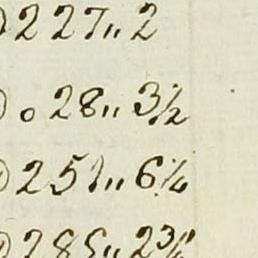 227 〃 2
0 28 〃 3½
251 〃 6¼
285 〃 2¾